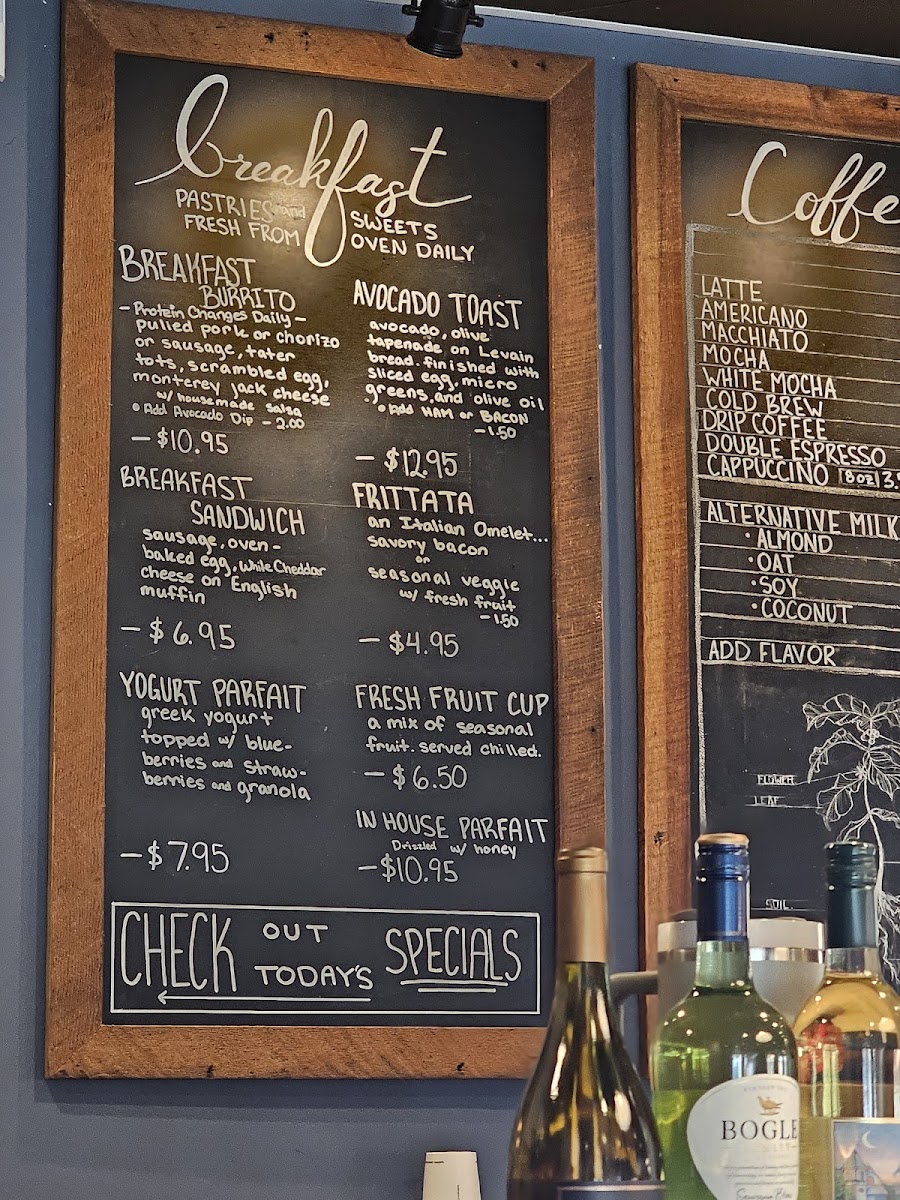 breakfast
PASTRIES and SWEETS
FRESH FROM OVEN DAILY
BREAKFAST
BURRITO
- Protein Changes Daily -
pulled pork or chorizo
or sausage, tater
tots, scrambled egg,
monterey jack cheese
w/ housemade salsa
• Add Avocado Dip - 2.00
- $10.95
BREAKFAST
SANDWICH
sausage, oven-
baked egg, White Cheddar
cheese on English
muffin
- $6.95
YOGURT PARFAIT
greek yogurt
topped w/ blue-
berries and straw-
berries and granola
- $7.95
AVOCADO TOAST
avocado, olive
tapenade on Levain
bread. finished with
sliced egg, micro
greens, and olive oil
• Add HAM or BACON
- 1.50
- $12.95
FRITTATA
an Italian Omelet...
savory bacon
or
seasonal veggie
w/ fresh fruit
- 1.50
- $4.95
FRESH FRUIT CUP
a mix of seasonal
fruit. served chilled.
- $6.50
IN HOUSE PARFAIT
Drizzled w/ honey
- $10.95
CHECK OUT TODAY'S SPECIALS
Coffe
LATTE
AMERICANO
MACCHIATO
MOCHA
WHITE MOCHA
COLD BREW
DRIP COFFEE
DOUBLE ESPRESSO
CAPPUCCINO 8oz 3.9
ALTERNATIVE MILK
• ALMOND
• OAT
• SOY
• COCONUT
ADD FLAVOR
FLOWER
LEAF
SOIL
BOGLE